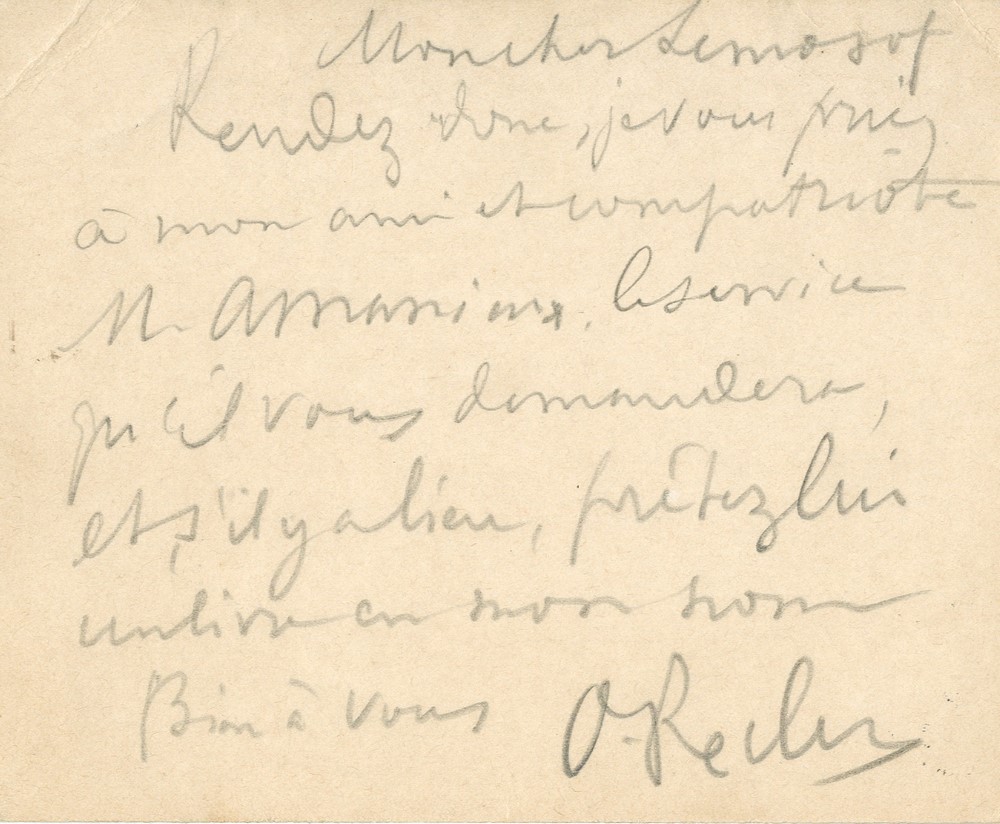 Mon cher Lemosof
Rendez donc, je vous prie,
à mon ami et compatriote
M. Amanieux, le service
qu'il vous demandera,
et s'il y a lieu, prêtez lui
un livre en mon nom
Bien à vous O. Reclus